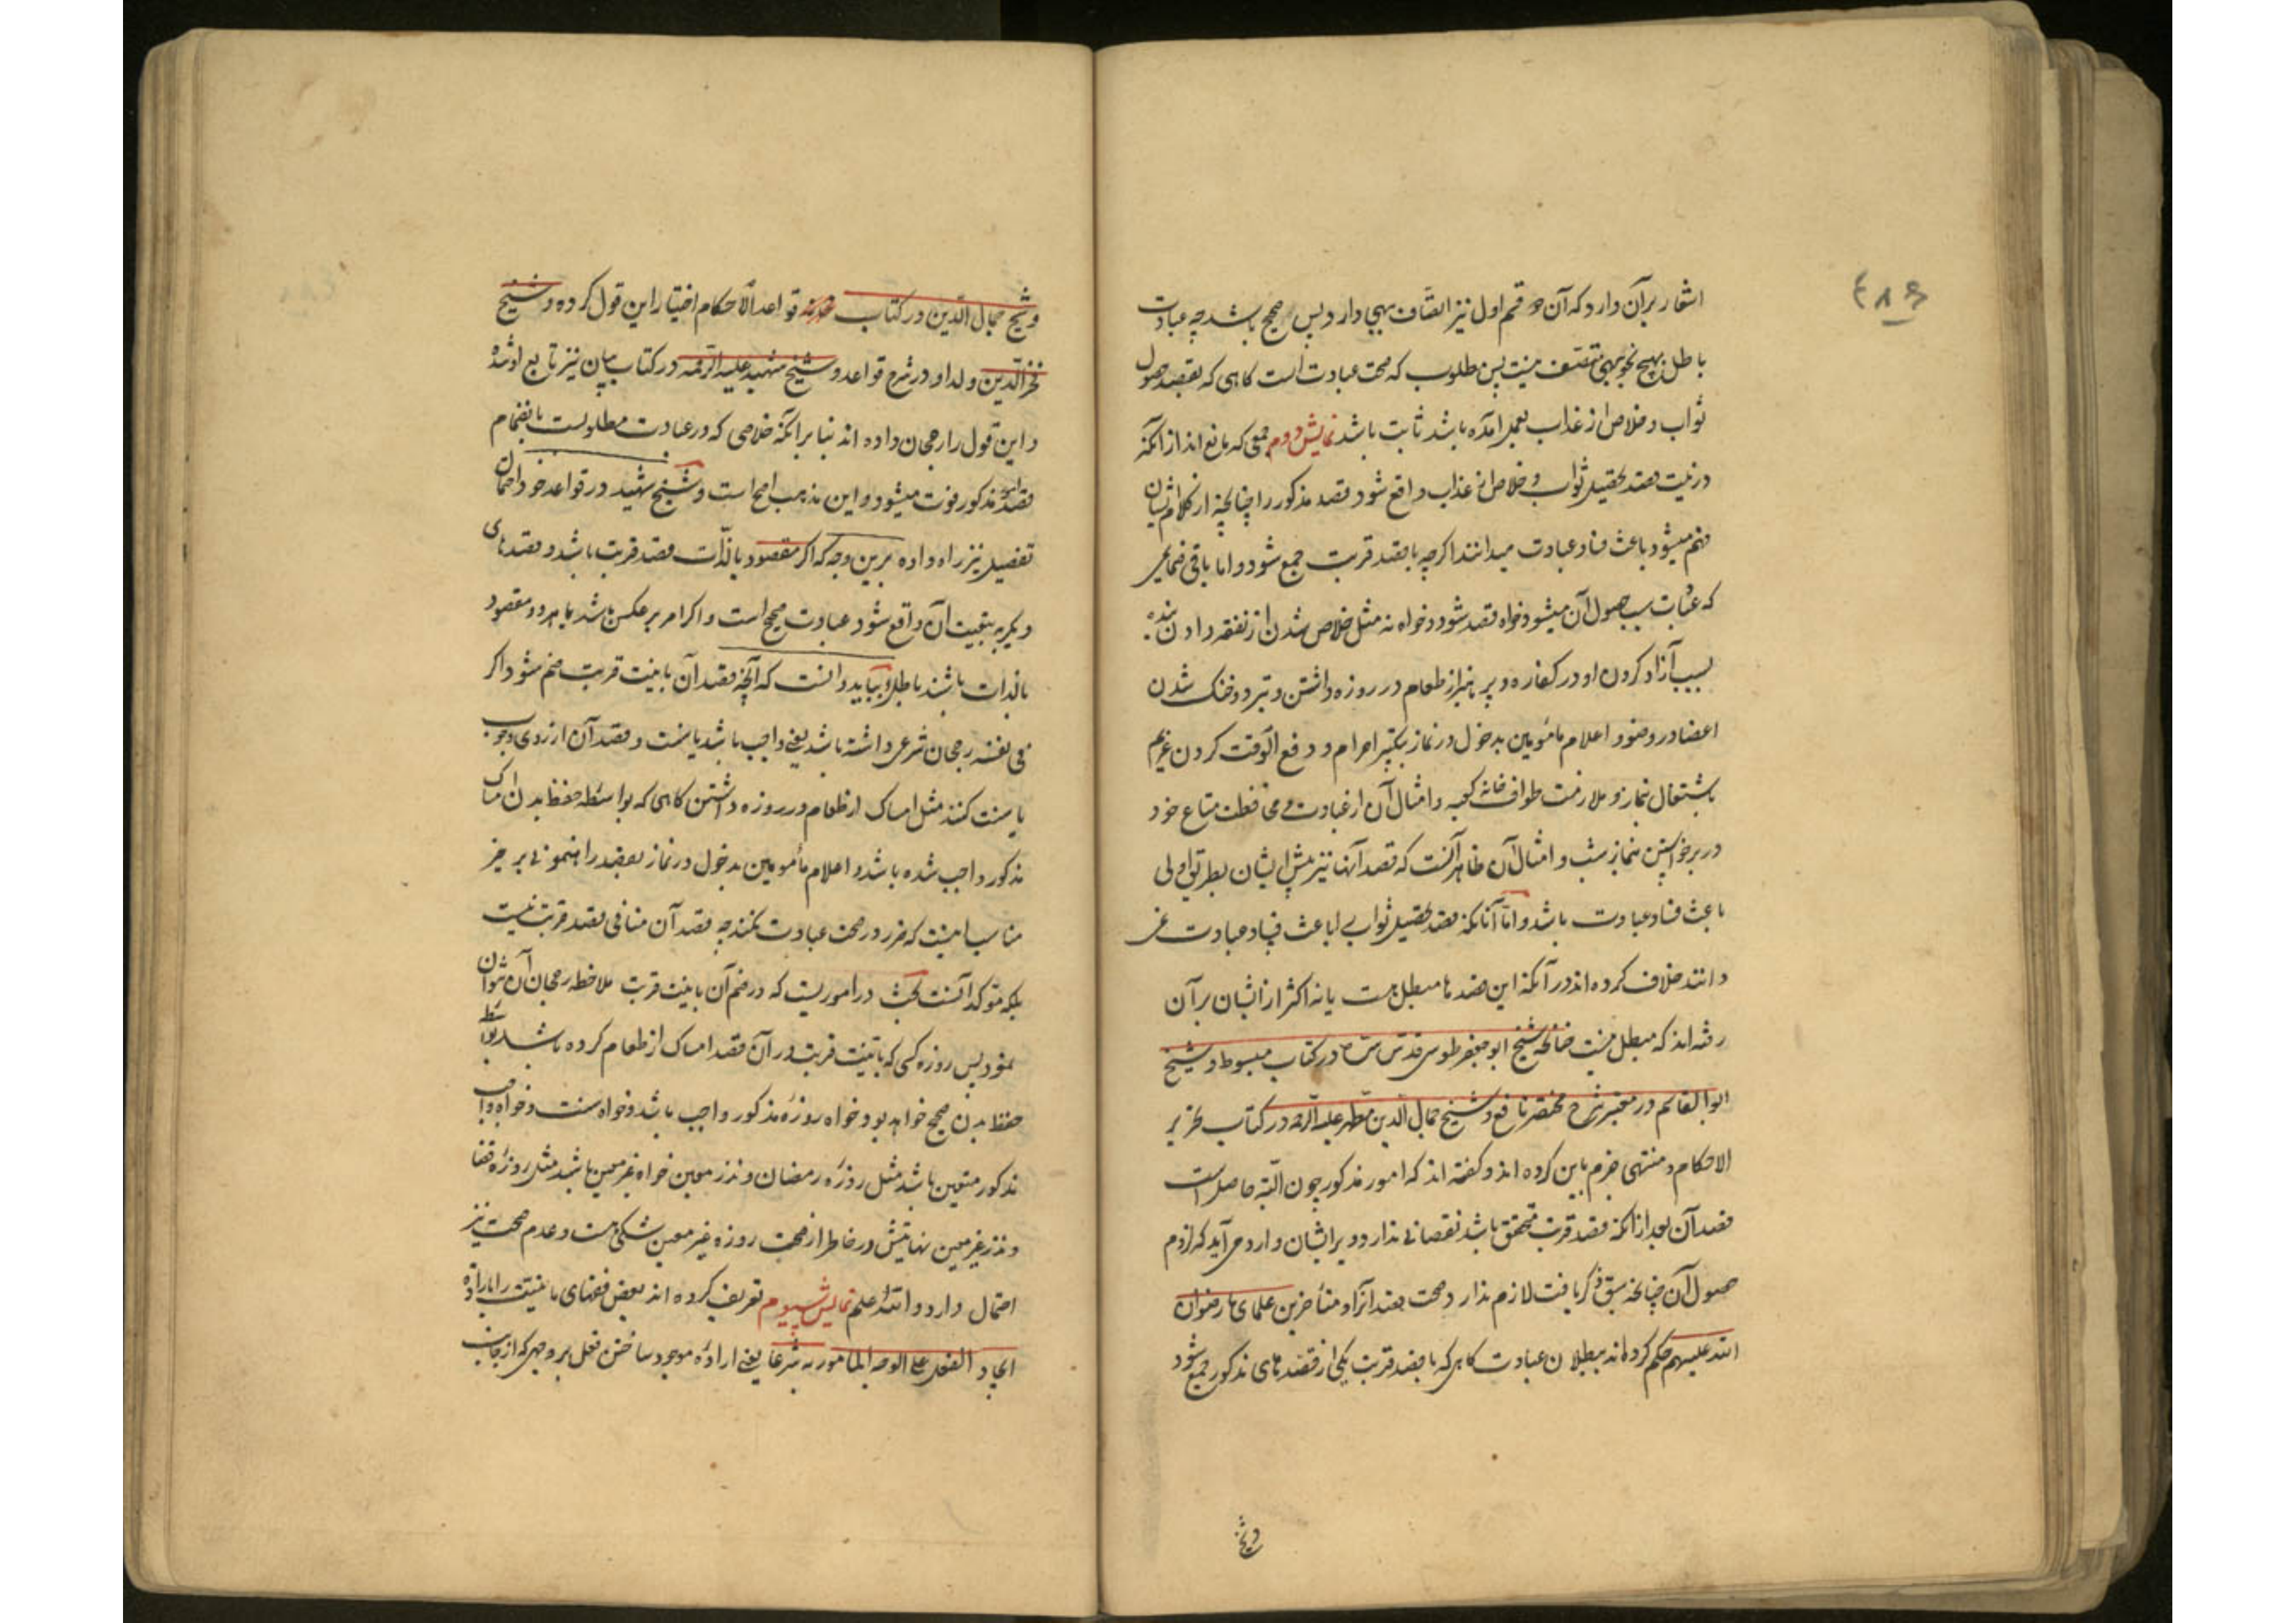 ۴۸۶
اشعار بر آن دارد که آن دو قسم اول نیز اتصاف بهی دارد پس صحیح باشد چه عبادت
باطل بهیچ نحو بهی متصف نیست پس مطلوب که صحت عبادت است کاهی که بقصد حصول
ثواب و خلاص از عذاب بعمل آمده باشد ثابت باشد نمایش دوم جمعی که مانع اند از آنکه
در نیت قصد تحصیل ثواب و خلاص از عذاب واقع شود قصد مذکور را چنانچه از کلام ایشان
فهم میشود باعث فساد عبادت میدانند اکرچه با قصد قربت جمع شود و اما باقی ضمایمی
که عبادت سبب حصول آن میشود خواه قصد شود و خواه نه مثل خلاص شدن از نفقه دادن بنده
بسبب آزاد کردن او در کفاره و پرهیز از طعام در روزه داشتن و تبرد و خنک شدن
اعضا در وضو و اعلام مأمومین بدخول در نماز بتکبیر احرام و دفع الوقت کردن غریم
باشتغال نماز و ملازمت طواف خانه کعبه و امثال آن از عبادت و محافظت متاع خود
در برخواستن بنماز شب و امثال آن ظاهر آنست که قصد آنها نیز پیش ایشان بطریق اولی
باعث فساد عبادت باشد و اما آنانکه قصد تحصیل ثواب را باعث فساد عبادت نمی
دانند خلاف کرده اند در آنکه این قصدها مبطل هست یا نه اکثر از ایشان بر آن
رفته اند که مبطل نیست چنانچه شیخ ابو جعفر طوسی قدس سره در کتاب مبسوط و شیخ
ابو القاسم در معتبر شرح مختصر نافع و شیخ جمال الدین مطهر علیه الرحمه در کتاب تحریر
الاحکام و منتهی جزم باین کرده اند و کفته اند که امور مذکور چون البته حاصل است
قصد آن بعد از آنکه قصد قربت متحقق باشد نقصانی ندارد و بر ایشان وارد می آید که لزوم
حصول آن چنانچه سبق ذکر یافت لازم ندارد صحت قصد آنرا و متأخرین علمای ما رضوان
الله علیهم حکم کرده اند ببطلان عبادت کاهی که با قصد قربت یکی از قصدهای مذکور جمع شود
وشیخ
وشیخ جمال الدین در کتاب قواعد الاحکام اختیار این قول کرده و شیخ
فخر الدین ولد او در شرح قواعد و شیخ شهید علیه الرحمه در کتاب بیان نیز تابع او شده
و این قول را رجحان داده اند بنا بر آنکه خلاصی که در عبادت مطلوبست بانضمام
قصد مذکور فوت میشود و این مذهب اصح است و شیخ شهید در قواعد خود احتمال
تفصیل نیز راه داده برین وجه که اکر مقصود بالذات قصد قربت باشد و قصدهای
دیکر به تبعیت آن واقع شود عبادت صحیح است و اکر امر بر عکس باشد یا هر دو مقصود
بالذات باشند باطل و بباید دانست که آنچه قصد آن با نیت قربت ضم شود اکر
فی نفسه رجحان شرعی داشته باشد یعنی واجب باشد یا سنت و قصد آن از روی وجوب
یا سنت کنند مثل امساک از طعام در روزه داشتن کاهی که بواسطه حفظ بدن امساک
مذکور واجب شده باشد و اعلام مأمومین بدخول در نماز بقصد راهنمونی بر خیر
مناسب اینست که ضرر در صحت عبادت نکند چه قصد آن منافی قصد قربت نیست
بلکه مؤکد آنست بحث در اموریست که در ضم آن با نیت قربت ملاحظه رجحان آن نتوان
نمود پس روزه کسی که با نیت قربت در آن قصد امساک از طعام کرده باشد بواسطه
حفظ بدن صحیح خواهد بود خواه روزهٔ مذکور واجب باشد و خواه سنت و خواه واجب
مذکور متعین باشد مثل روزه رمضان و نذر معین خواه غیر معین باشد مثل روزه قضا
و نذر غیر معین نهایتش در خاطر از صحت روزه غیر معین شکی هست و عدم صحت نیز
احتمال دارد و الله اعلم نمایش سیوم تعریف کرده اند بعض فقهای ما نیت را بارادة
ایجاد الفعل علی الوجه المأمور به شرعا یعنی اراده موجود ساختن فعل بر وجهی که از جانب